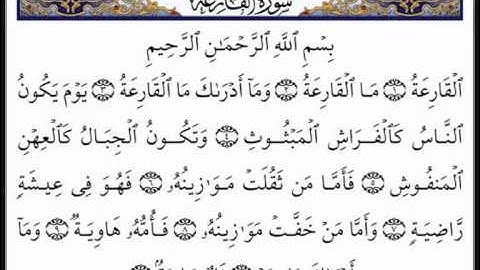 سُورَةُ القَارِعَةِ
بِسْمِ ٱللَّهِ ٱلرَّحْمَـٰنِ ٱلرَّحِيمِ
ٱلْقَارِعَةُ ۝١ مَا ٱلْقَارِعَةُ ۝٢ وَمَآ أَدْرَىٰكَ مَا ٱلْقَارِعَةُ ۝٣ يَوْمَ يَكُونُ
ٱلنَّاسُ كَٱلْفَرَاشِ ٱلْمَبْثُوثِ ۝٤ وَتَكُونُ ٱلْجِبَالُ كَٱلْعِهْنِ
ٱلْمَنفُوشِ ۝٥ فَأَمَّا مَن ثَقُلَتْ مَوَٰزِينُهُۥ ۝٦ فَهُوَ فِى عِيشَةٍ
رَّاضِيَةٍ ۝٧ وَأَمَّا مَنْ خَفَّتْ مَوَٰزِينُهُۥ ۝٨ فَأُمُّهُۥ هَاوِيَةٌ ۝٩ وَمَآ